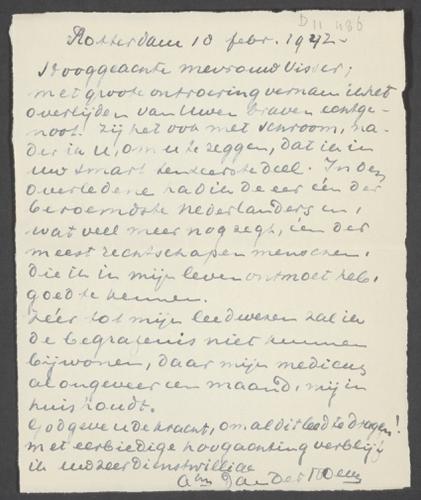 D II 486
Rotterdam 18 febr. 1942.-
Hooggeachte mevrouw Visser;
met groote ontroering vernam ik het
overlijden van Uwen braven echtge-
noot. Zij het ook met schroom, na-
der ik U, om u te zeggen, dat ik in
uw smart ten zeerste deel. In den
overledene had ik de eer één der
beroemdste Nederlanders en,
wat veel meer nog zegt, één der
meest rechtschapen menschen,
die ik in mijn leven ontmoet heb,
goed te kennen.
Zéér tot mijn leedwezen zal ik
de begrafenis niet kunnen
bijwonen, daar mijn medicus
al ongeveer een maand, mij in
huis houdt.
God geve u de kracht, om al dit leed te dragen!
met eerbiedige hoogachting verblijf
ik uw zeer dienstwillige
Abm van der